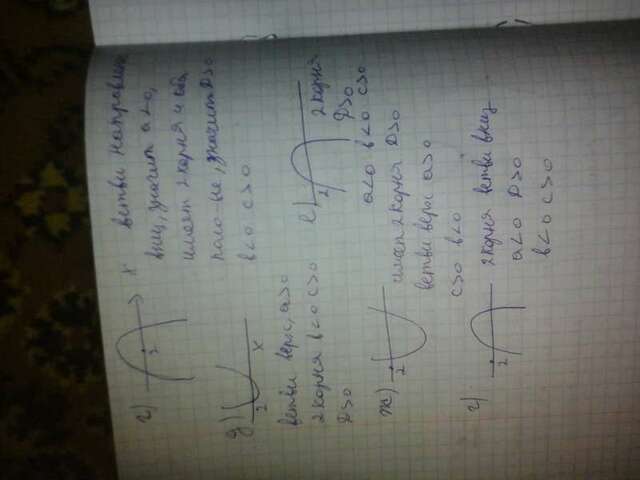 г) x ветви направлены
вниз, значит a<0,
имеет 2 корня и ед.
поло-ые, значит D>0
b<0 c>0
д) 2 x
ветви верх, a>0
2 корня b<0 c>0
D>0
е) 2 2 корня
D>0
a<0 b<0 c>0
ж) 2 имеет 2 корня D>0
ветви верх a>0
c>0 b<0
г) 2 2 корня ветви вниз
a<0 D>0
b<0 c>0